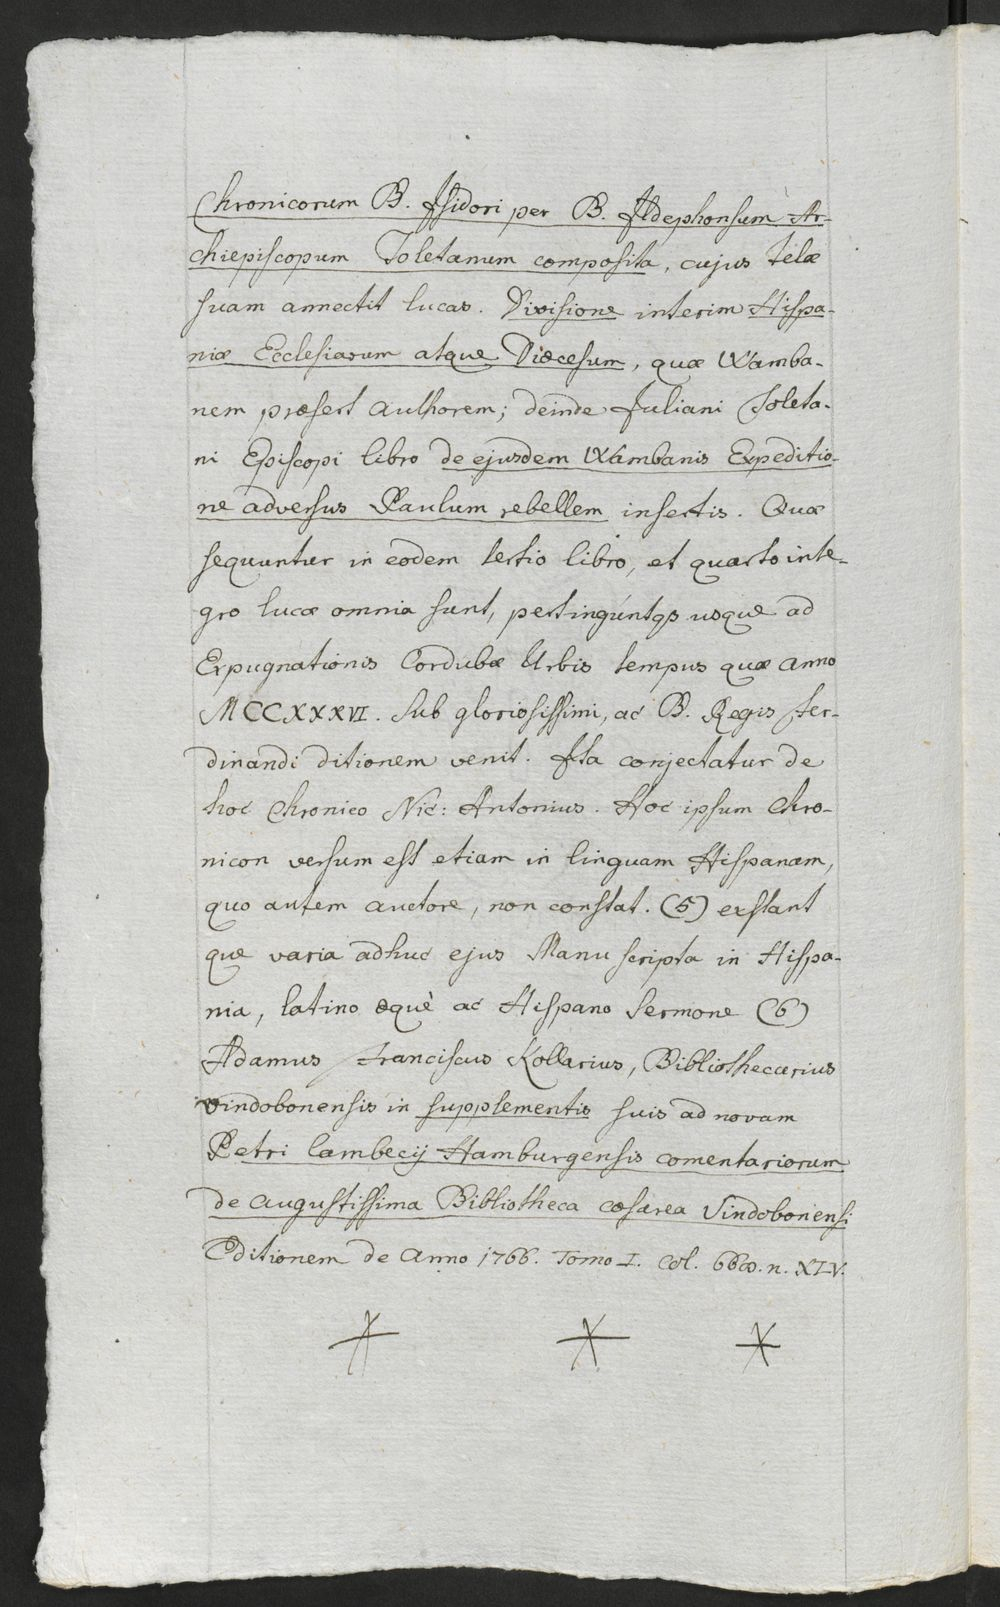 Chronicorum B. Isidori per B. Ildephonsum Ar-
chiepiscopum Toletanum composita, cujus telæ
suam annectit lucas. Divisione interim Hispa-
niæ Ecclesiarum atque Diœcesum, quæ Wamba-
nem præfert authorem; deinde Juliani Toleta-
ni Episcopi libro de ejusdem Wambanis Expeditio-
ne adversus Paulum rebellem insertis. Quæ
sequuntur in eodem tertio libro, et quarto inte-
gro lucæ omnia sunt, pertinguntqs usque ad
Expugnationis Cordubæ Urbis tempus quæ anno
MCCXXXVI. sub gloriosissimi, ac B. Regis Fer-
dinandi ditionem venit. Ita conjectatur de
hoc Chronico Nic: Antonius. Hoc ipsum Chro-
nicon versum est etiam in linguam Hispanam,
quo autem auctore, non constat. (5) exstant
que varia adhuc ejus Manu scripta in Hispa-
nia, latino æquè ac Hispano Sermone (6)
Adamus Franciscus Kollarius, Bibliothecarius
vindobonensis in supplementis suis ad novam
Petri lambecij Hamburgensis comentariorum
de augustissima Bibliotheca cæsarea Vindobonensi
Editionem de Anno 1766. Tomo I. Col. n. XLV.